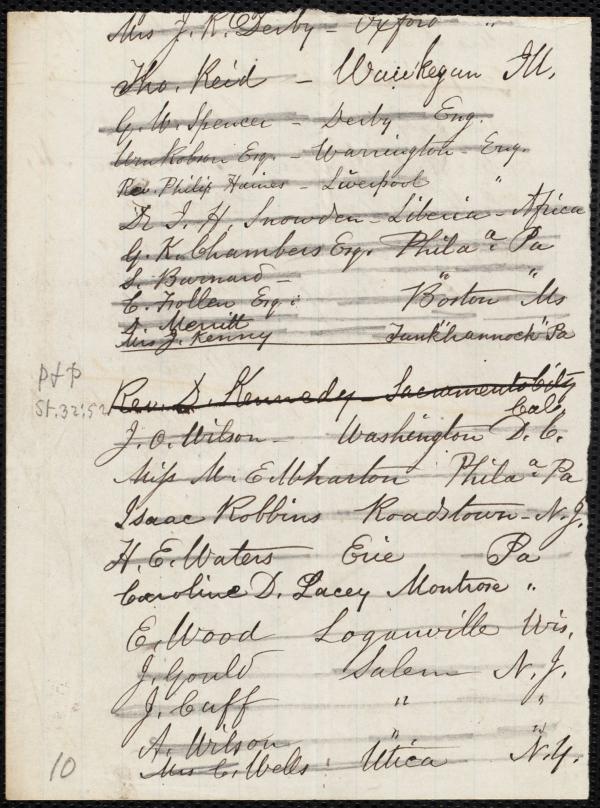 Mrs J. K. Derby – Oxford "
Tho. Reid – Waukegan Ill.
G. W. Spencer – Derby Eng.
Wm Robson Esq. – Warrington – Eng.
Rev. Philip Haines – Liverpool "
Dr J. H. Snowden – Liberia – Africa
G. K. Chambers Esq. Phila.a Pa
S. Barnard – " "
C. Follen Esq. Boston Ms
D. Merritt " "
Mrs J. Kenny Tunkhannock Pa
P & P
St. 32:52
Rev. D. Kennedy – Sacramento City
Cal.
J. O. Wilson – Washington D. C.
Miss M. E. Wharton Phila.a Pa
Isaac Robbins Roadstown – N. J.
H. E. Waters Erie Pa
Caroline D. Lacey Montrose "
E. Wood Loganville Wis.
J. Gould Salem N. J.
J. Cuff " "
A. Wilson " "
Mrs C. Wells Utica N. Y.
10